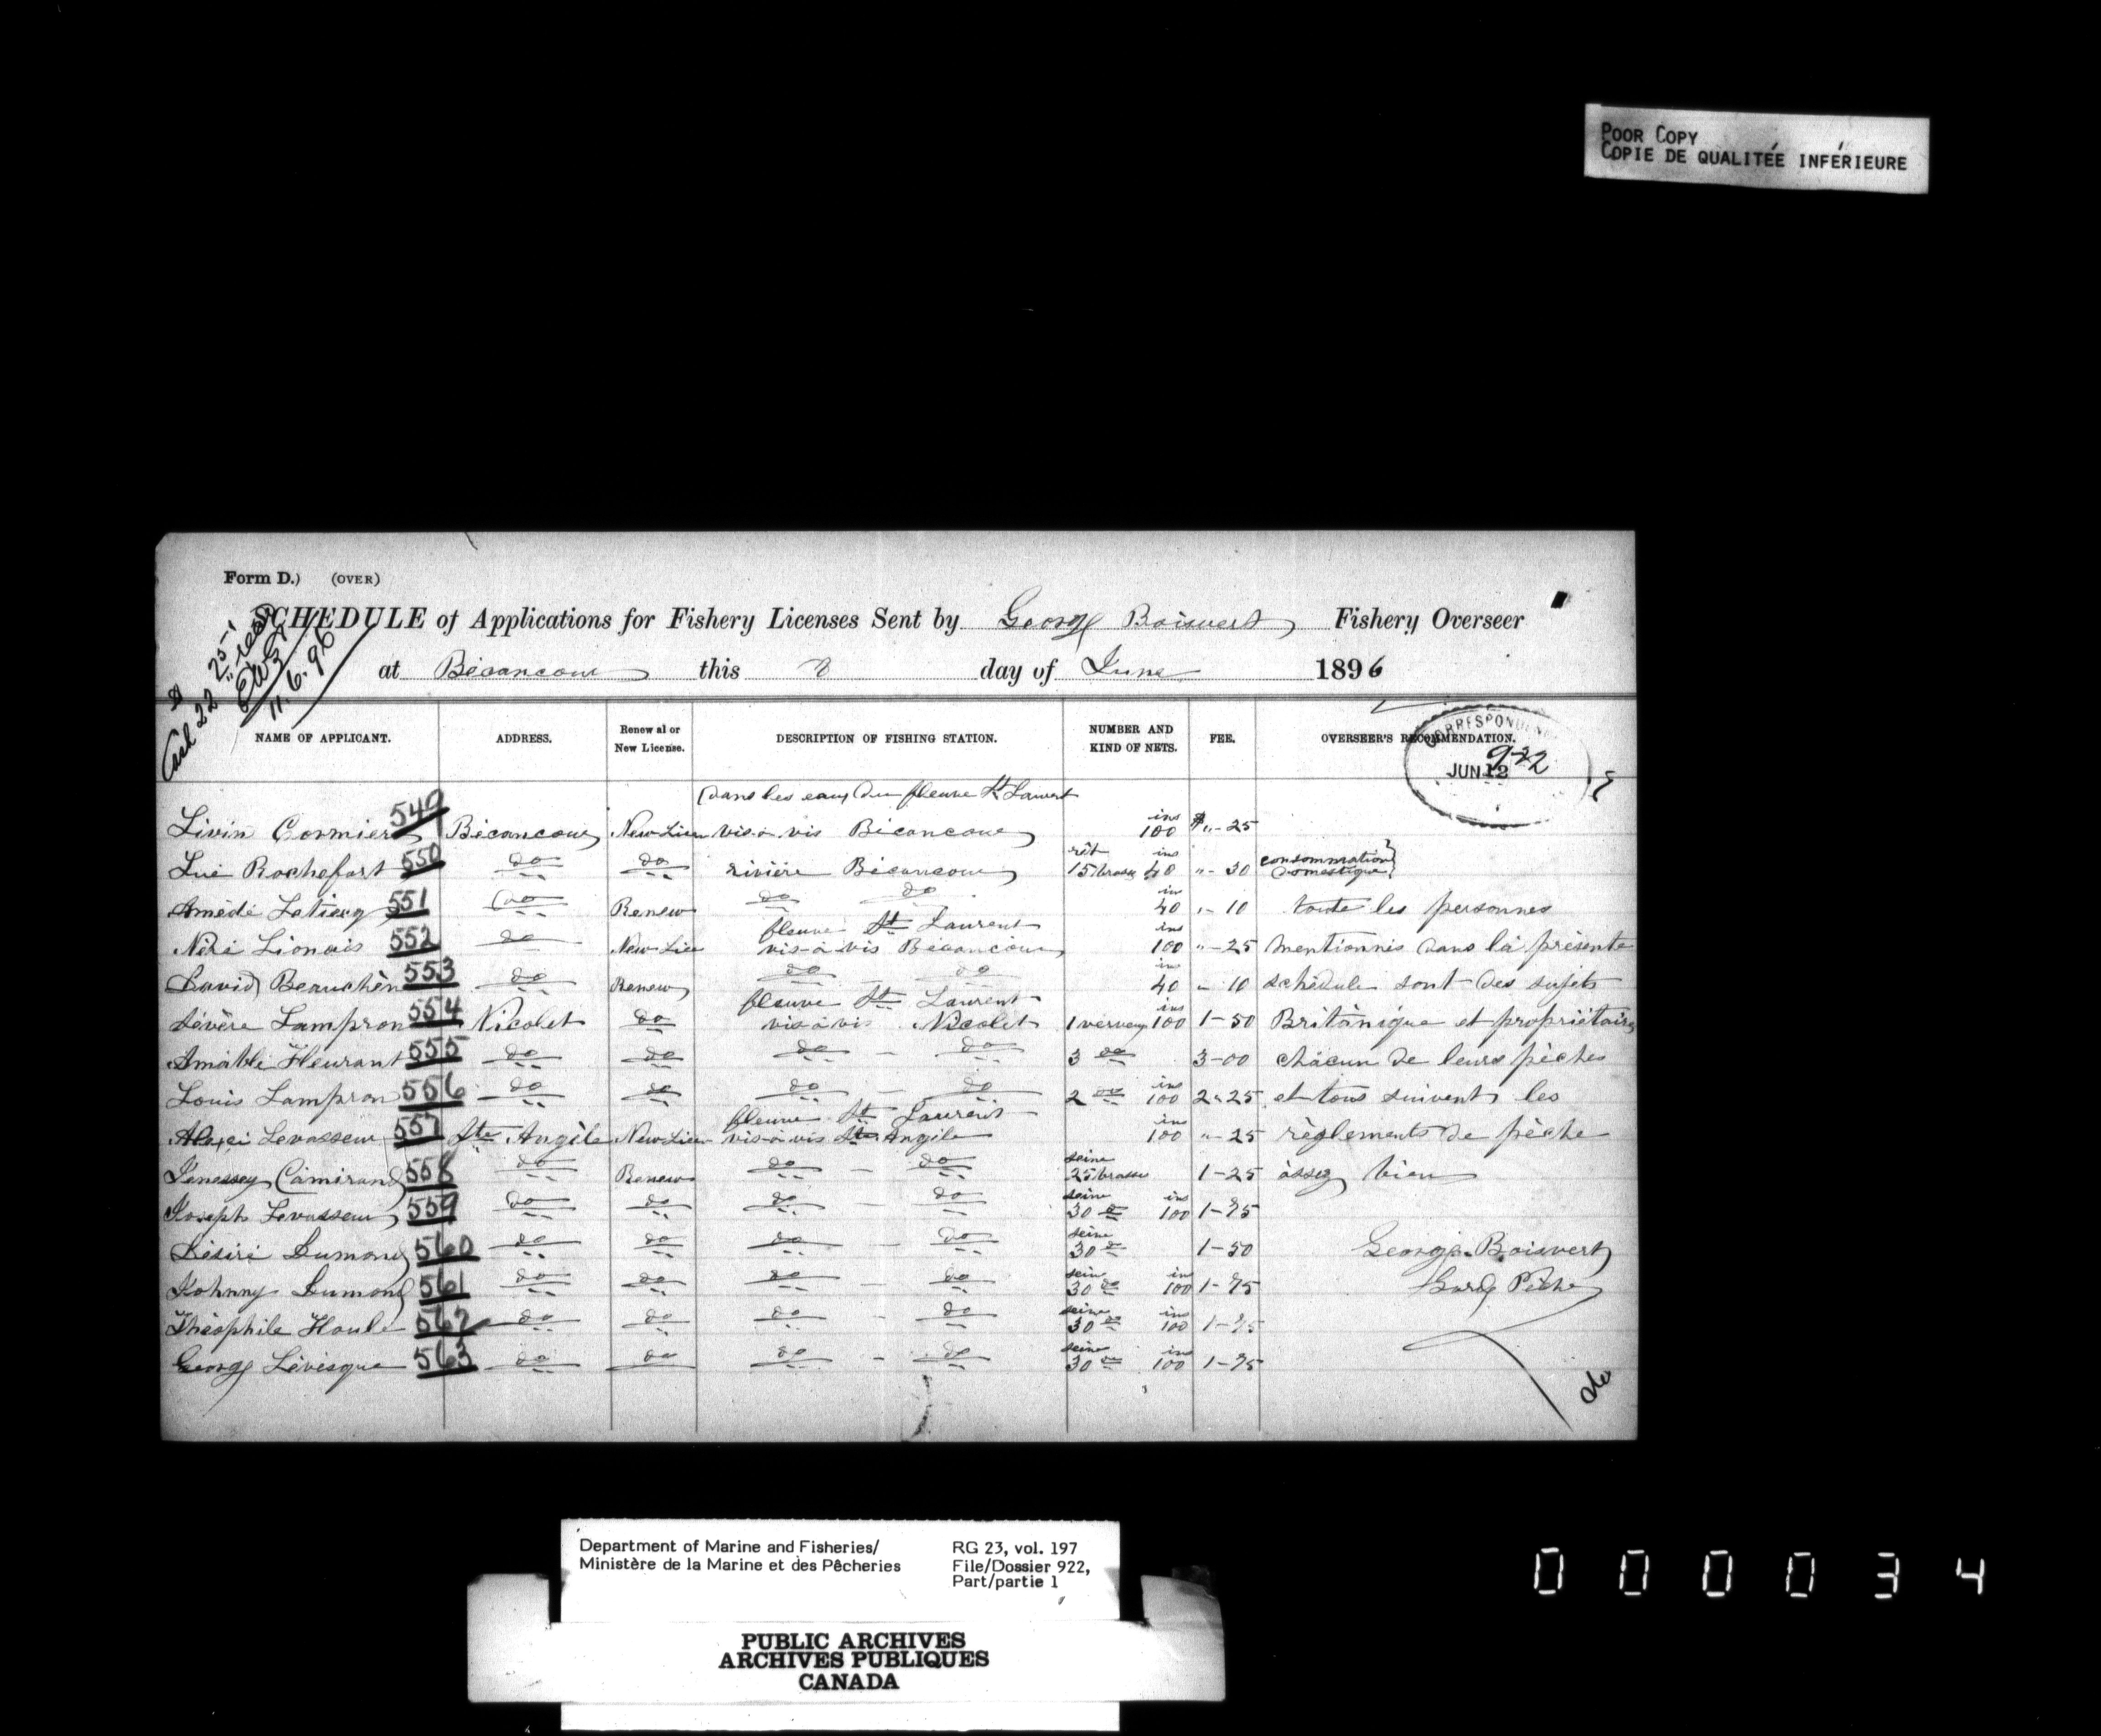 POOR COPY
COPIE DE QUALITÉE INFÉRIEURE
Form D.) (OVER)
SCHEDULE of Applications for Fishery Licenses Sent by George Boisvert Fishery Overseer
at Bécancour this 8 day of June 1896
Cash 22 25
11.6.96
NAME OF APPLICANT. ADDRESS. Renewal or New License. DESCRIPTION OF FISHING STATION. NUMBER AND KIND OF NETS. FEE. OVERSEER'S RECOMMENDATION.
CORRESPONDENCE
922
JUN 12
Dans les eaux du fleuve St Laurent
Livin Cormier 549 Bécancour New Licen vis-à-vis Bécancour ins 100 $ " - 25
Luc Rochefort 550 do do rivière Bécancour rêt 15 brasse ins 40 " - 30 consommation domestique
Amédé 551 do Renew do do in 40 " - 10 toute les personnes
Néré Lionais 552 do New Lice fleuve St Laurent vis-à-vis Bécancour ins 100 " - 25 mentionnés dans la présente
David Beauchên 553 do Renew do do ins 40 " - 10 schédule sont des sujets
Sévère Lampron 554 Nicolet do fleuve St Laurent vis à vis Nicolet 1 verveux ins 100 1-50 Britànique et propriétaires
Amable Fleurant 555 do do do - do 3 do 3-00 chacun de leurs pêches
Louis Lampron 556 do do do - do 2 do ins 100 2 " 25 et tous suivent les
Alexi Levasseur 557 Ste Angèle New Licen fleuve St Laurent vis-à-vis Ste Angèle ins 100 " - 25 règlements de pêche
Camirand 558 do Renew do - do seine 25 brasse 1-25 assez bien
Joseph Levasseur 559 do do do - do seine 30 do ins 100 1-75
Désiré Dumond 560 do do do - do seine 30 do 1-50 George Boisvert
Johnny Dumond 561 do do do - do seine 30 do ins 100 1-75 Garde Pêche
Théophile Houle 562 do do do - do seine 30 do ins 100 1-75
George Lévesque 563 do do do - do seine 30 do ins 100 1-75
Department of Marine and Fisheries/ RG 23, vol. 197
Ministère de la Marine et des Pêcheries File/Dossier 922,
Part/partie 1
PUBLIC ARCHIVES
ARCHIVES PUBLIQUES
CANADA
000034